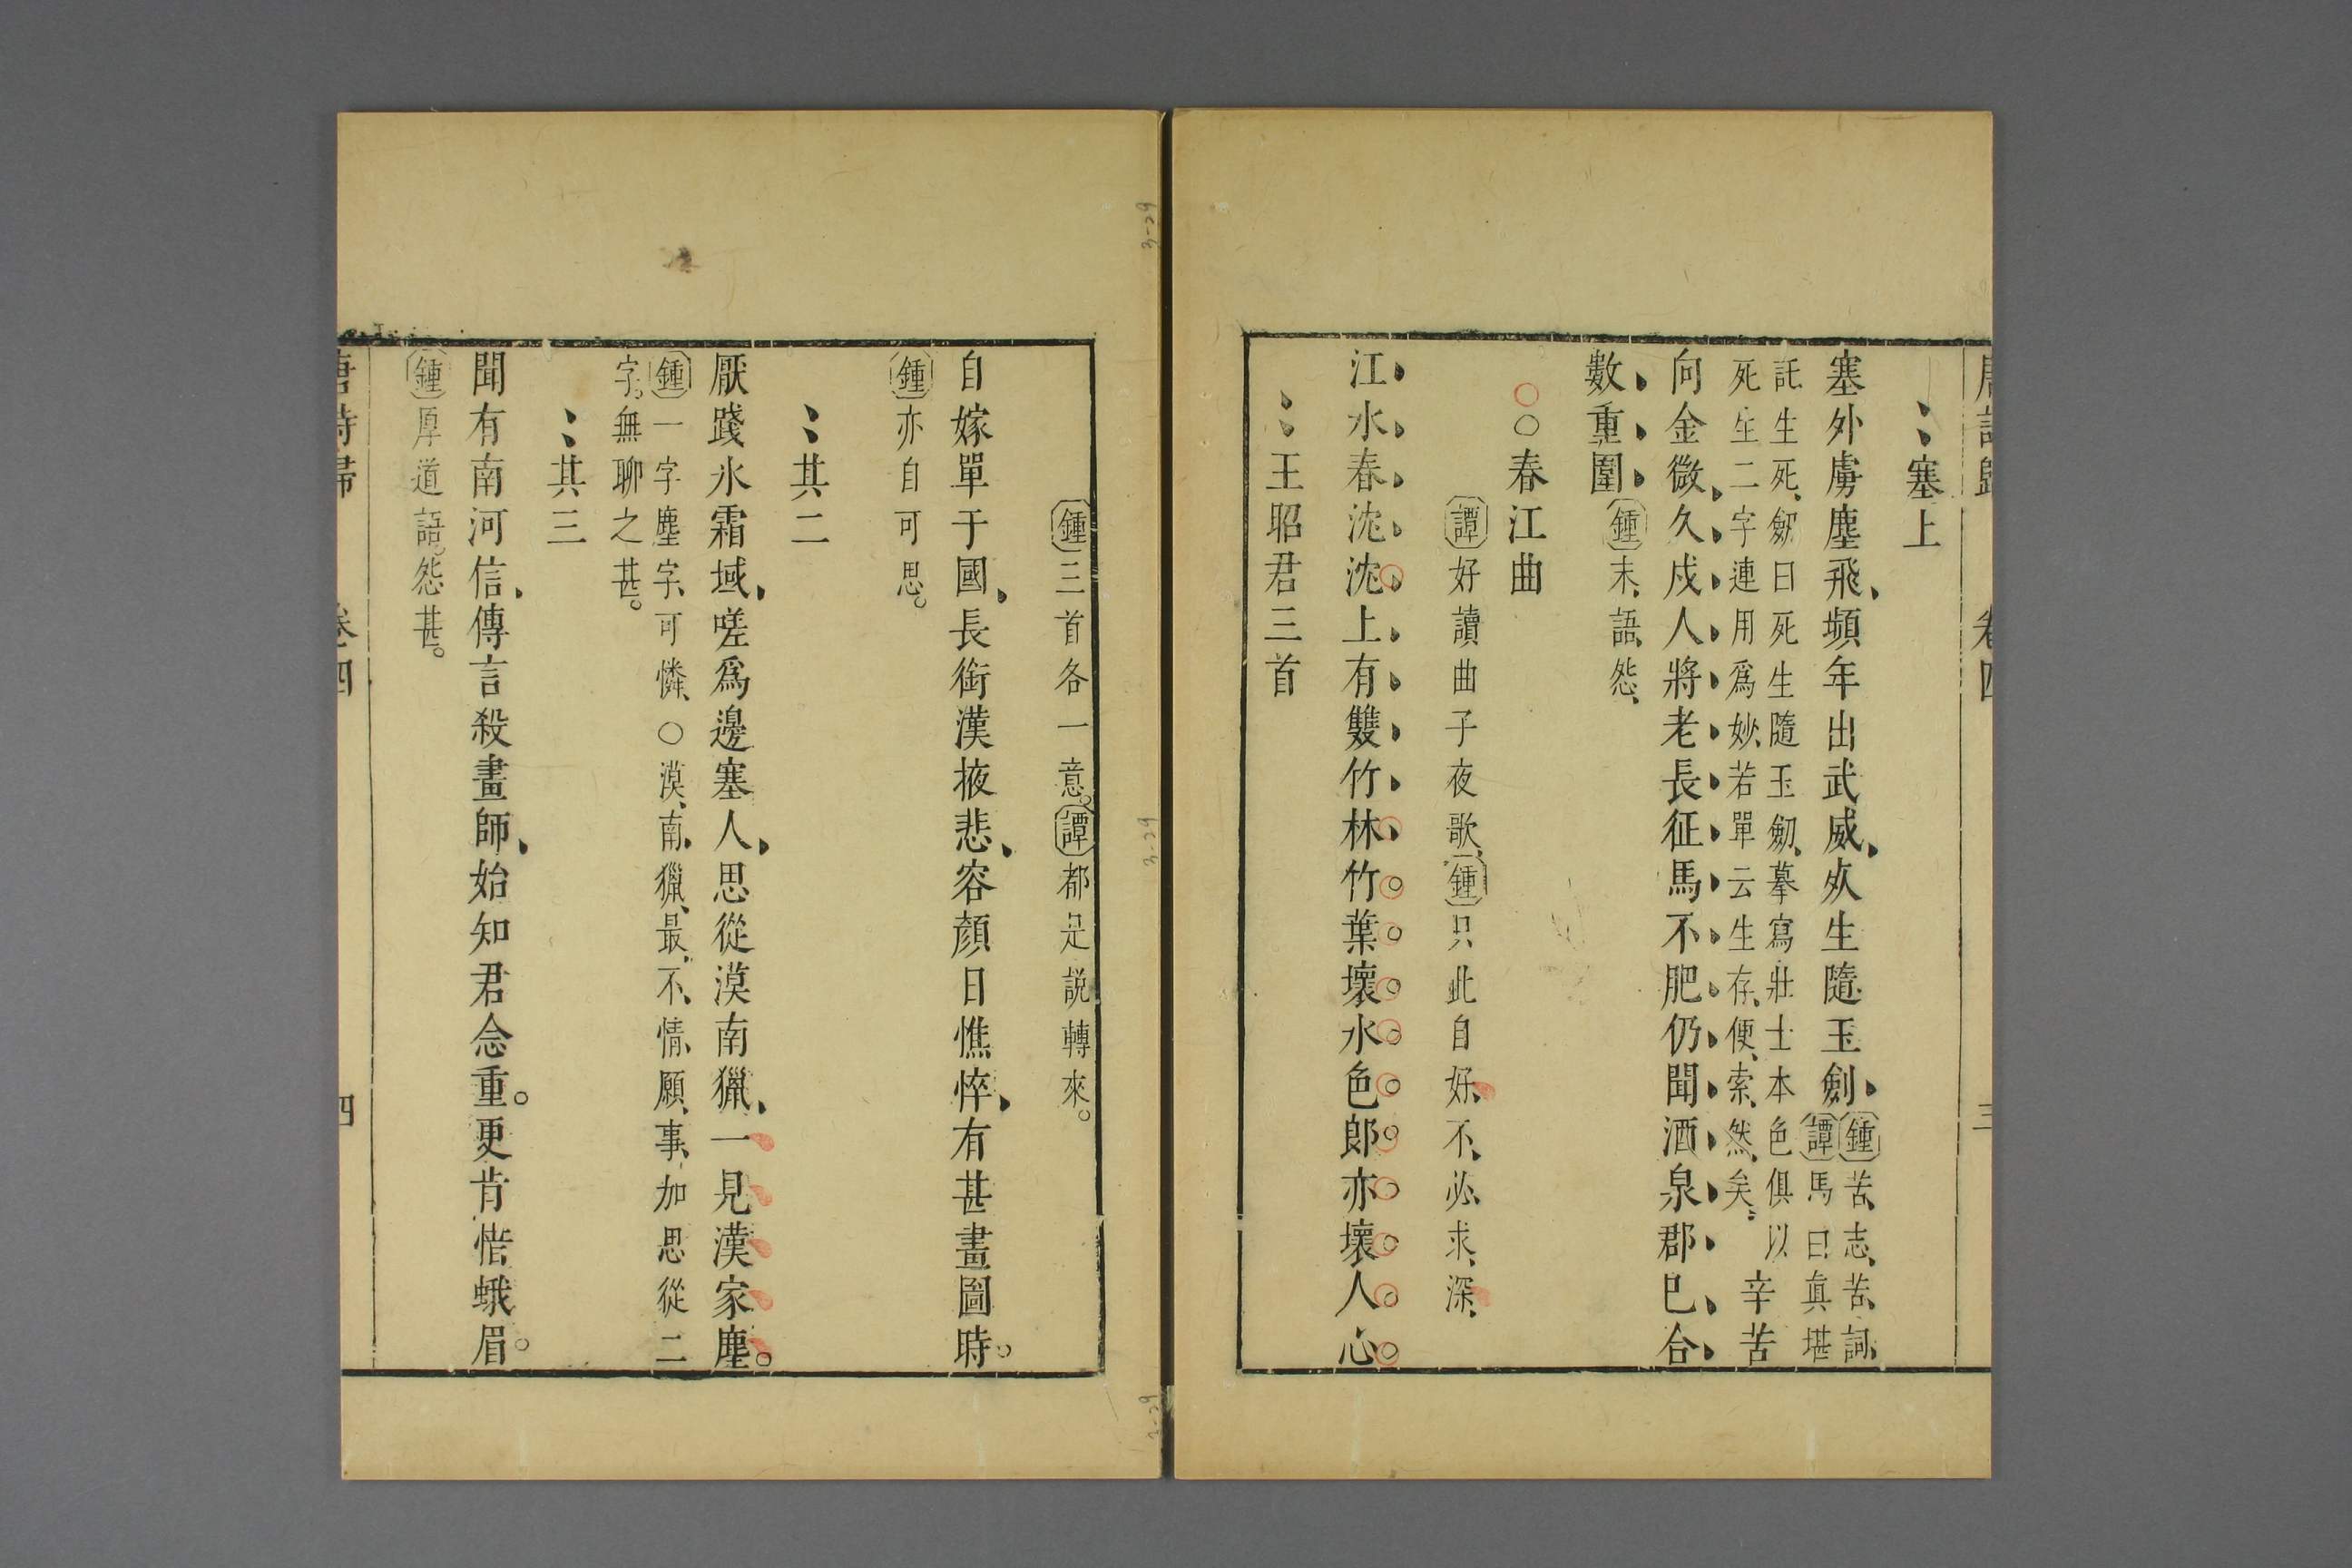 唐詩歸 卷四 三
塞上
塞外虜塵飛頻年出武威死生隨玉劍
鍾苦志苦詞
譚馬曰真堪
託生死劒曰死生隨玉劒摹寫壯士本色俱以
死生二字連用爲妙若單云生存便索然矣
辛苦
向金微久戍人將老長征馬不肥仍聞酒泉郡巳合
數重圍鍾末語怨
○春江曲
譚好讀曲子夜歌鍾只此自好不必求深
江水春沈沈上有雙竹林竹葉壞水色郎亦壞人心
王昭君三首
鍾三首各一意譚都是説轉來
自嫁單于國長銜漢掖悲容顏日憔悴有甚畫圖時
鍾亦自可思
其二
厭踐氷霜域嗟爲邊塞人思從漠南獵一見漢家塵
鍾一字塵字可憐○漠南獵最不情願事加思從二
字無聊之甚
其三
聞有南河信傳言殺畫師始知君念重更肯惜蛾眉
鍾厚道語怨甚
唐詩歸 卷四 四
3-29
3-29
3-29